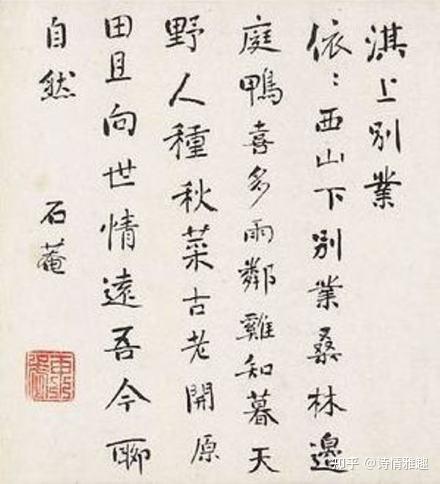 淇上別業
依：西山下別業桑林邊
庭鴨喜多雨鄰雞知暮天
野人種秋菜古老開原
田且向世情遠吾今聊
自然
石菴
知乎 @诗情雅趣